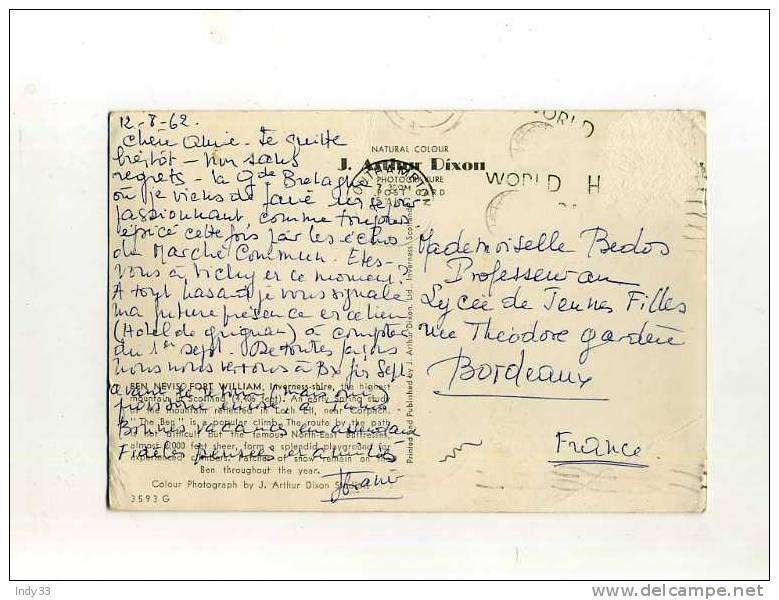 12-8-62.
Chère amie - Je quitte
bientôt - non sans
regrets - la Gde Bretagne
où je viens de faire un séjour
passionnant, comme toujours
épicé cette fois par les échos
du Marché Commun. Êtes-
vous à Vichy en ce moment?
A tout hasard je vous signale
ma future présence en ce lieu
(Hotel de Grignan) à compter
du 1er sept. De toutes façons
nous nous verrons à Bx fin Sept
Bonnes vacances en
Fidèles pensées et amitiés
NATURAL COLOUR
J. Arthur Dixon
PHOTOGRAVURE
POST CARD
WORLD
WORLD H
Mademoiselle Bedos
Professeur au
Lycée de Jeunes Filles
rue Théodore Gardère
Bordeaux
France
Printed and Published by J. Arthur Dixon Ltd., Inverness, Scotland
BEN NEVIS, FORT WILLIAM, Inverness-shire, the highest
mountain in Scotland (4,406 feet). An early Spring study
of the mountain reflected in Loch Eil, near Corpach.
"The Ben" is a popular climb. The route by the path
is not difficult but the famous North-East Buttresses,
almost 2,000 feet sheer, form a splendid playground for
experienced climbers. Patches of snow remain on the
Ben throughout the year.
Colour Photograph by J. Arthur Dixon Studios.
3593 G
Indy33
delcampe.net